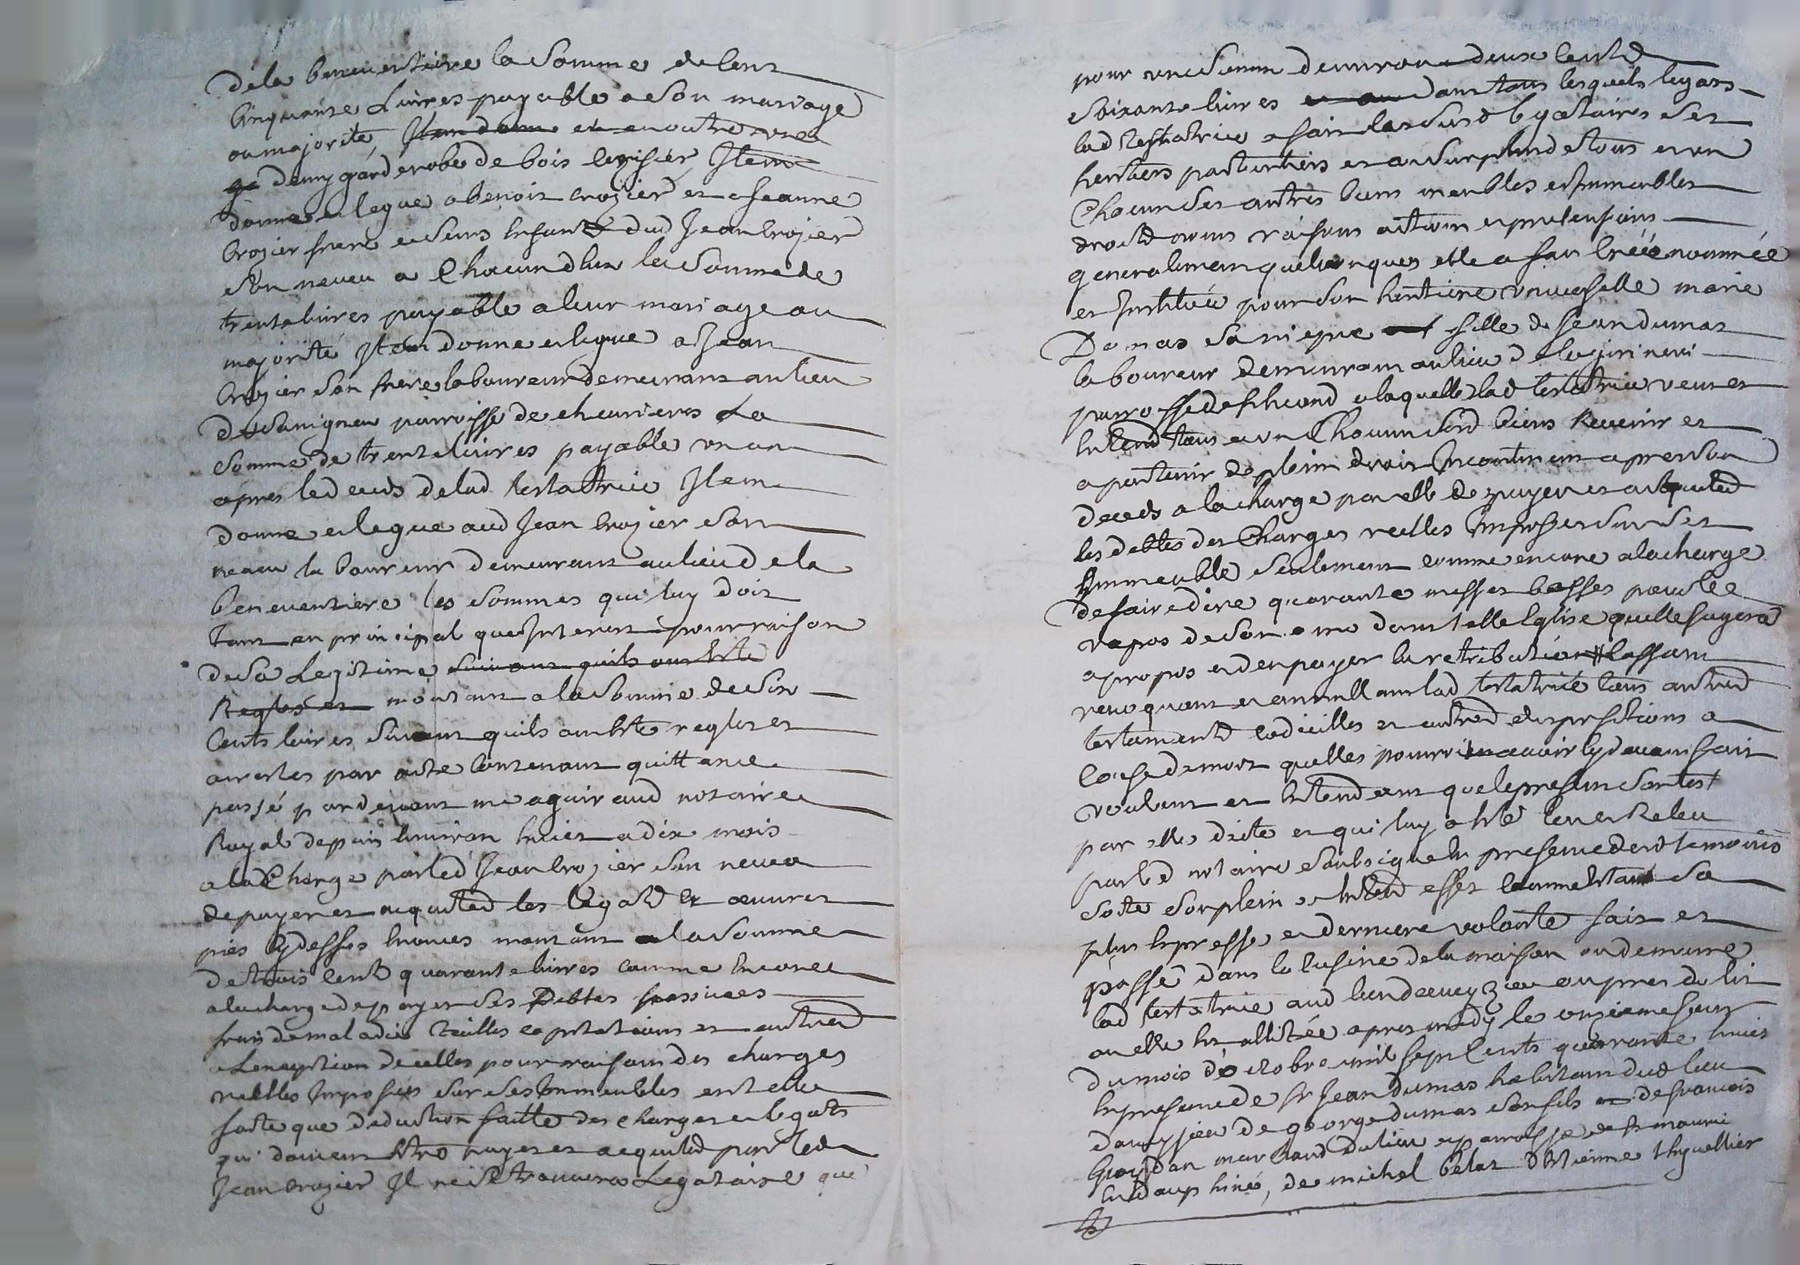 dela beneventiere la somme de cent
cinquante livres payable a son mariage
ou majorité Item donne et en outre une
demy garderobe de bois cerisier Item
donne et legue a benoit crozier et a Jeanne
Crozier frere et seurs enfants dud Jean Crozier
son neveu a Chacun d'eux la somme de
trente livres payable a leur mariage ou
majorité Item donne et legue a Jean
Crozier son frere laboureur demeurant au lieu
de parroisse de chevrieres La
somme de trente livres payable un an
apres le deceds de lad testatrice Item
donne et legue aud Jean Crozier son
neveu laboureur demeurant au lieu dela
beneventiere les sommes qui luy doit
tant en principal que Interest pour raison
de sa Legitime suivant quils ont esté
Reglés et montant a la somme de six
cents livres suivant quils ont esté regles et
arrestes par acte contenant quittance
passé pardevant me aguiraud notaire
Royal depuis environ huict a dix mois
a la Charge par led Jean Crozier son neveu
de payer et acquitter les legats et œuvres
pies cy dessus enoncés montant a la somme
de trois cent quarante livres comme encore
a la charge de payer ses Debtes passives
frais de maladie tailles capitations et autres
a l'exeption de celles pour raison des charges
reelles Imposées sur ses Immeubles en telle
sorte que deduction faitte des charges et legats
qui doivent estre payes et acquités par led
Jean crozier Il ne se trouvera Legataire que
pour une somme d'environ deux cents
soixante livres dans tous lesquels legats
lad testatrice a fait les susd legataires ses
heritiers particuliers et au surplus de tous et un
Chacun ses autres biens meubles et Immeubles
droits noms raisons actions et pretensions
generalement quelconques elle a fait créé nommée
et Institué pour son heritiere universelle marie
Dumas sa niepce fille de Jean dumas
laboureur demeurant au lieu de
parroisse de a laquelle lad testatrice veut et
entend tous et un Chacun sesd biens Revenir et
apartenir de plein droit Incontinent apres son
deceds a la charge par elle de payer et acquitter
les debtes des Charges reelles Imposées sur ses
Immeuble seulement comme encore a la charge
de faire dire quarante messes basses pour le
repos de son ame dans telle Eglise quelle jugera
apropos et d'en payer la retribution cassant
revoquant et annullant lad testatrice tous autres
testaments codicilles et autres dispositions a
cause de mort quelles pourroit avoir cy devant fait
voulant et entendant que le present
par elle dicte et qui luy a esté leu et Releu
par led notaire soubsigné en presence desd temoins
sorte son plein et entier effet comme estant sa
plus expresse et derniere volonté fait et
passé dans la cuisine de la maison ou demeure
lad testatrice aud lieu aupres du lit
ou elle est allitée apres midy le onzieme jour
du mois d'octobre mil sept cents quarante huict
en presence de sr Jean dumas habitant dud lieu
de george dumas son fils de francois
marchand du lieu et parroisse de
en dauphiné, de michel d'Etienne thyvellier